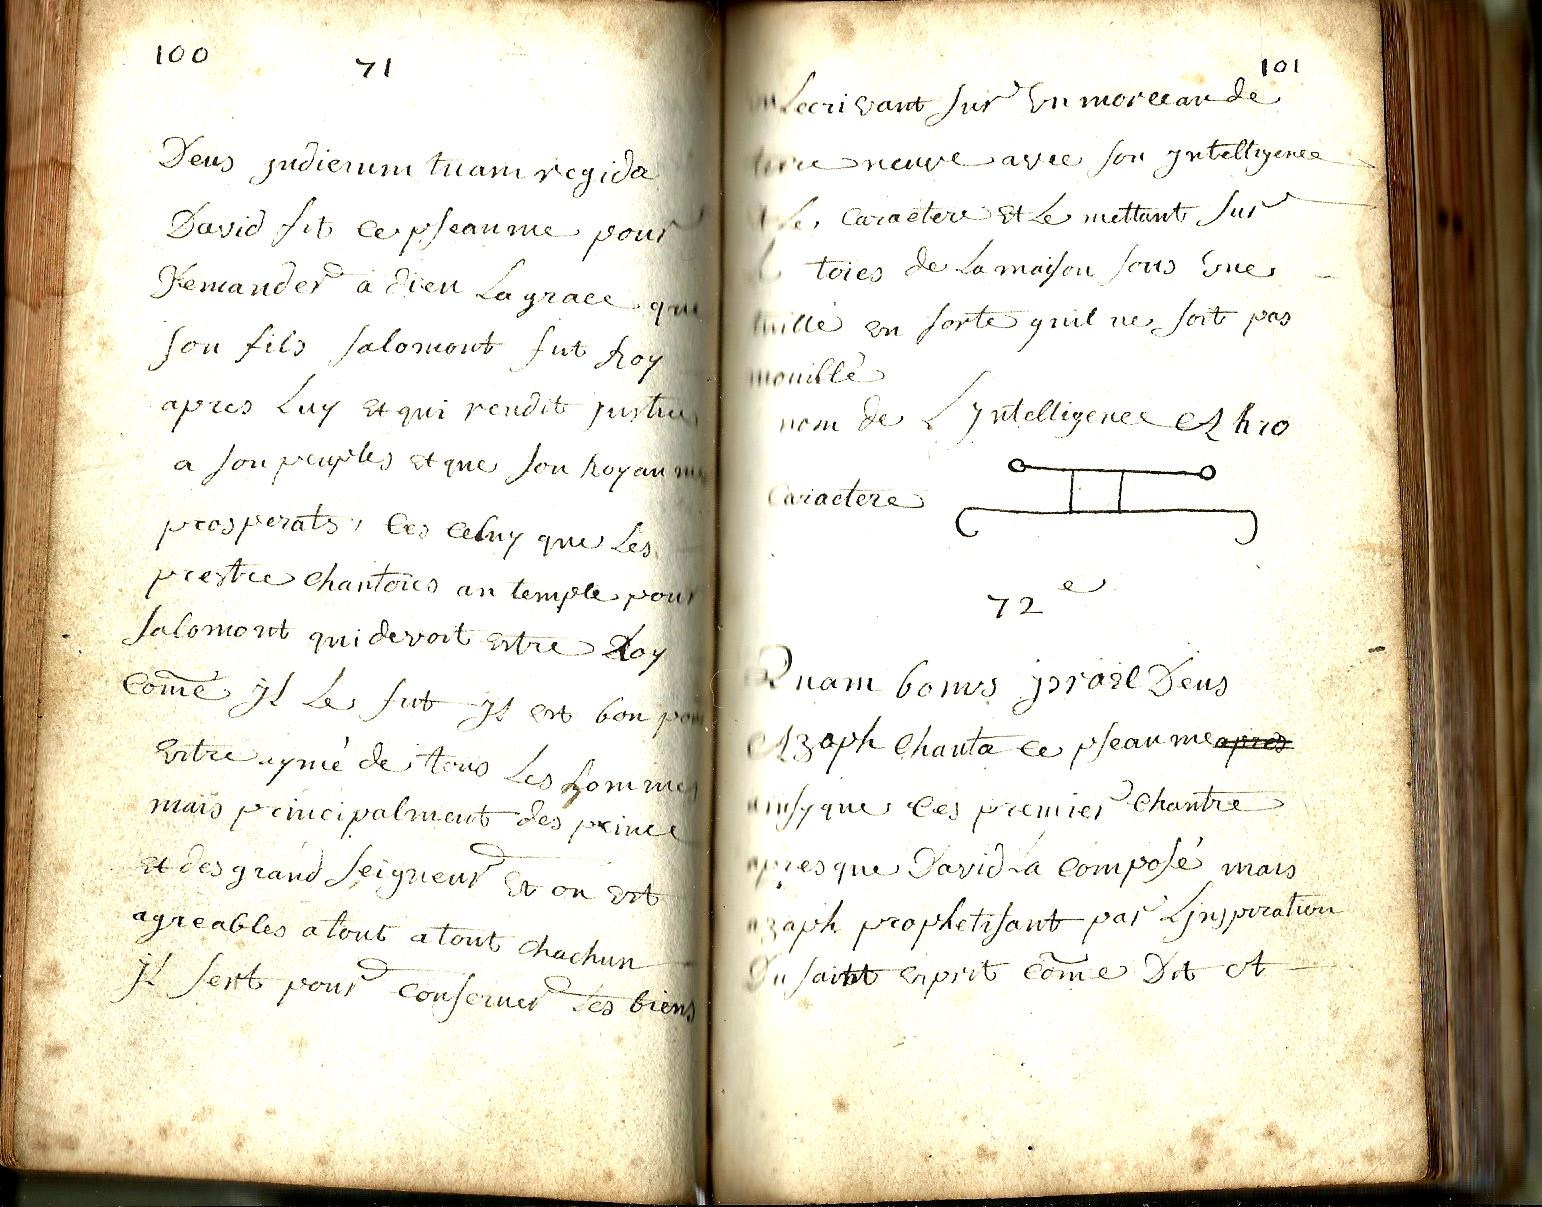 100
71
Deus judicium tuam regida
David fit ce pseaume pour
Demander a dieu La grace que
son fils salomont fut Roy
apres Luy Et qui rendit justice
a son peuples et que son Royaume
prosperats, Ces Celuy que Les
prestre chantoies au temple pour
salomont qui devoit estre Roy
Com̃e jl Le fut jl est bon pour
Estre aymé de tous Les hommes
mais principalment des prince
Et des grand seigneur Et on est
agreables a tout a tout chachun
jl sert pour conserver Les biens
101
Lecrivant sur Un morceau de
terre neuve avec son yntelligence
et Le, caractere Et Le mettant sur
toies de La maison sous Une
tuille en sorte quil ne soit pas
mouillé
nom de L'yntelligence Ahro
Caractere
72e
Quam bonus jsrael Deus
Azaph chanta ce pseaume apres
ainsy que Ces premier chantre
apres que David La composé mais
azaph prophetisant par Linspiration
Du saint esprit com̃e Dit st